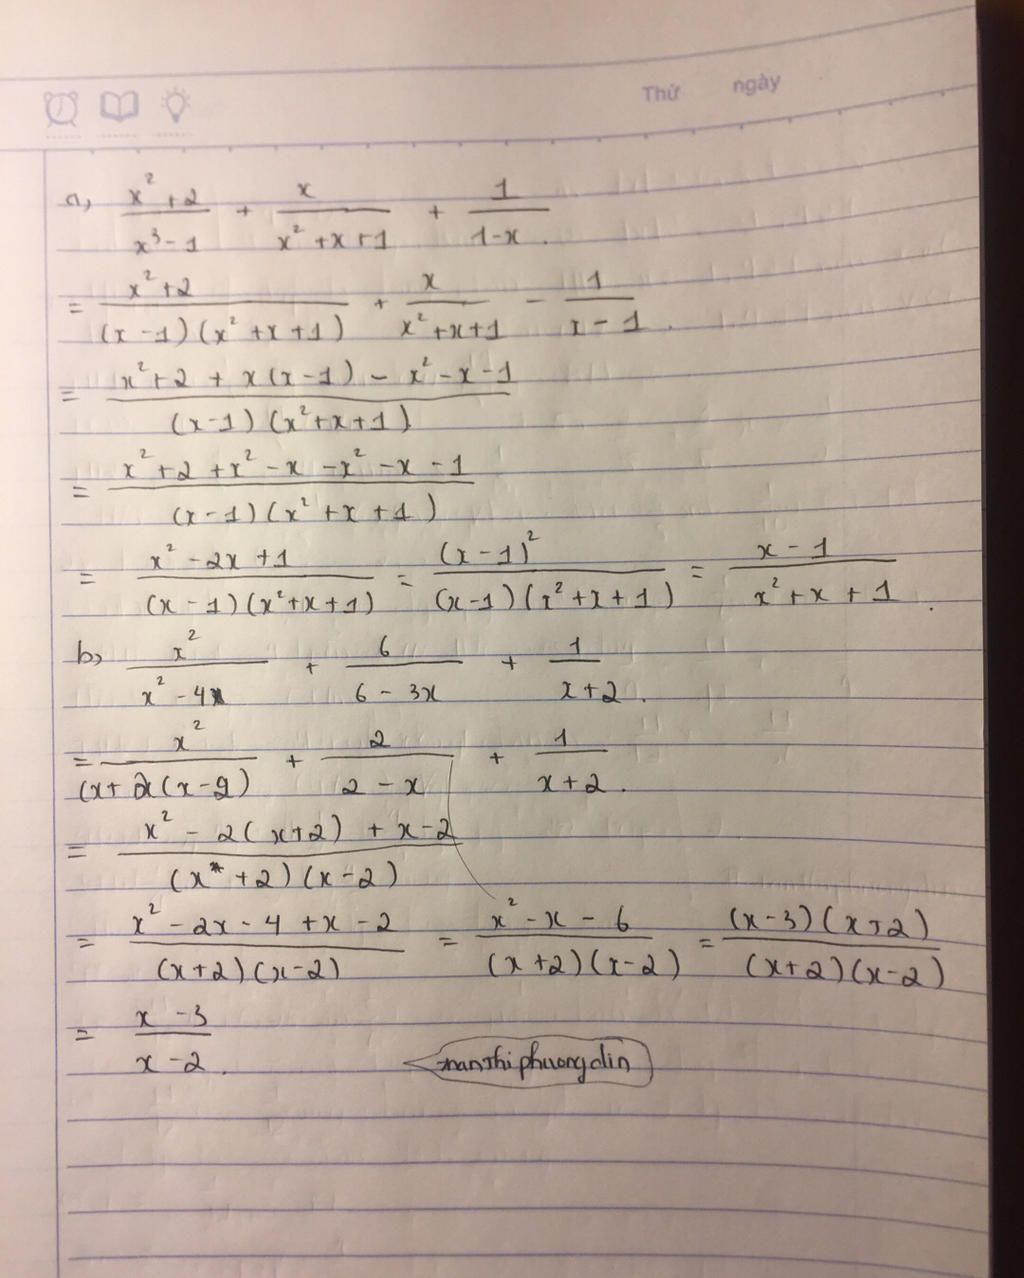 Thứ ngày
a, \frac{x^2+2}{x^3-1} + \frac{x}{x^2+x+1} + \frac{1}{1-x}.
= \frac{x^2+2}{(x-1)(x^2+x+1)} + \frac{x}{x^2+x+1} - \frac{1}{x-1}.
= \frac{x^2+2+x(x-1)-x^2-x-1}{(x-1)(x^2+x+1)}
= \frac{x^2+2+x^2-x-x^2-x-1}{(x-1)(x^2+x+1)}
= \frac{x^2-2x+1}{(x-1)(x^2+x+1)} = \frac{(x-1)^2}{(x-1)(x^2+x+1)} = \frac{x-1}{x^2+x+1}.
b, \frac{x^2}{x^2-4} + \frac{6}{6-3x} + \frac{1}{x+2}.
= \frac{x^2}{(x+2)(x-2)} + \frac{2}{2-x} + \frac{1}{x+2}.
= \frac{x^2-2(x+2)+x-2}{(x+2)(x-2)}
= \frac{x^2-2x-4+x-2}{(x+2)(x-2)} = \frac{x^2-x-6}{(x+2)(x-2)} = \frac{(x-3)(x+2)}{(x+2)(x-2)}
= \frac{x-3}{x-2}.